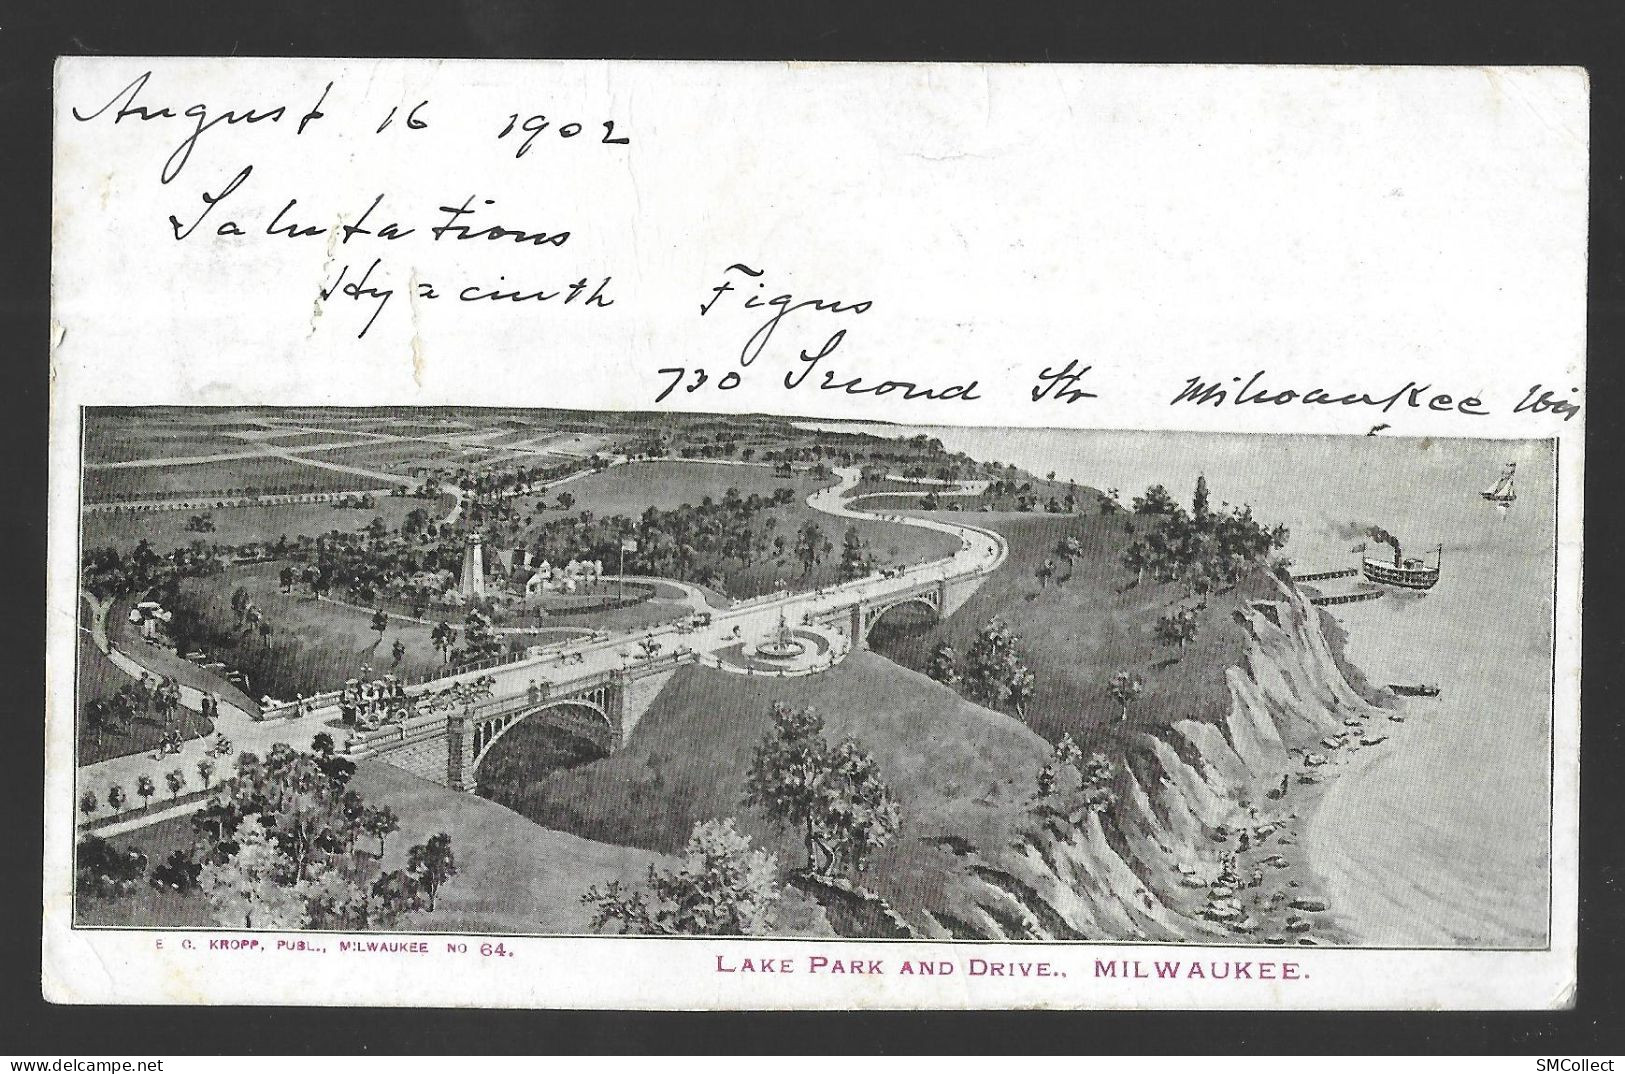 August 16 1902
Salutations
Hyacinth Figus
730 Second Str Milwaukee Wis
E. C. KROPP, PUBL., MILWAUKEE NO 64.
LAKE PARK AND DRIVE., MILWAUKEE.
SMCollect